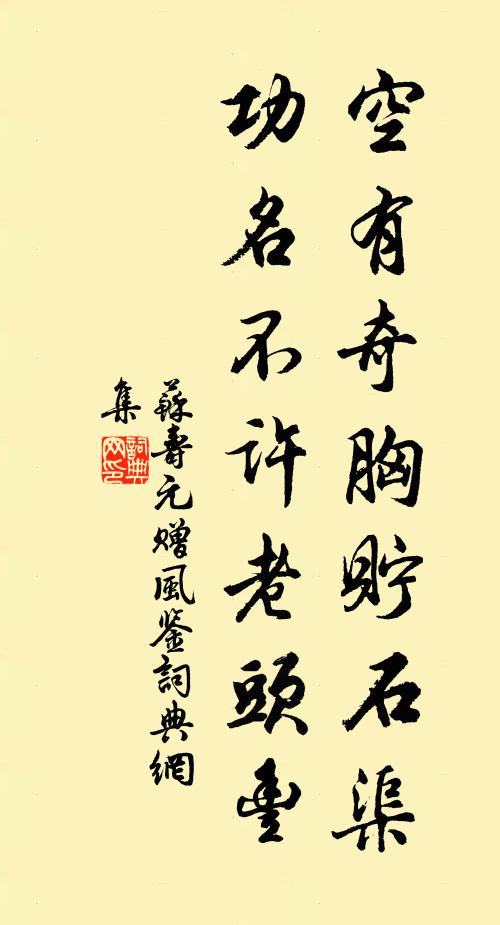 空有奇胸貯石渠
功名不許老頭豐
蘇壽元贈風鉴詞典網
集
詞典
网印